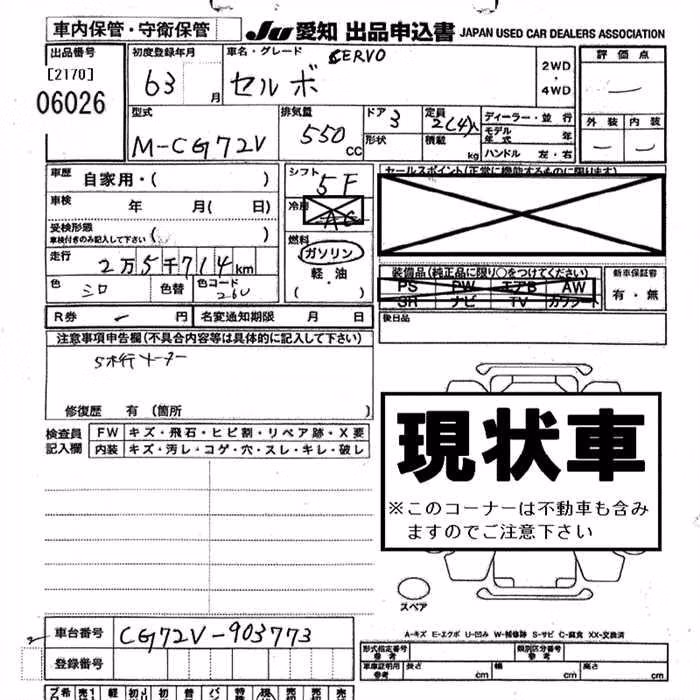 車内保管・守衛保管 JU 愛知 出品申込書 JAPAN USED CAR DEALERS ASSOCIATION
出品番号 初度登録年月 車名・グレード CERVO 評価点
[2170] 63 月 セルボ 2WD・4WD
06026 外装 内装
型式 排気量 ドア 3 定員 2(4)人 ディーラー・並行
M-CG72V 550 CC 形状 積載 kg モデル年式 年
ハンドル 左・右
車歴 自家用・( ) シフト 5F セールスポイント(正常に機能するものに限ります)
車検 年 月( 日) 冷房 AC
受検形態 車検付きのみ記入して下さい ( )
燃料 ガソリン
走行 2万5千714km 軽・油 装備品(純正品に限り○をつけてください) 新車保証書
色 シロ 色替 色コード 26U ( ) PS PW エアB AW 有・無
SR ナビ TV カワシート
R券 ー 円 名変通知期限 月 日 後日品
注意事項申告欄(不具合内容等は具体的に記入して下さい)
5木行メーター
修復歴 有 (箇所 )
検査員記入欄 FW キズ・飛石・ヒビ割・リペア跡・X要
内装 キズ・汚レ・コゲ・穴・スレ・キレ・破レ
現状車
※このコーナーは不動車も含み
ますのでご注意下さい
スペア
A-キズ E-エクボ U-凹み W-補修跡 S-サビ C-腐食 XX-交換済
車台番号 CG72V-903773
登録番号
型式指定番号 参考 類別区分番号 参考
車庫証明用 参考 長さ cm 幅 cm 高さ cm